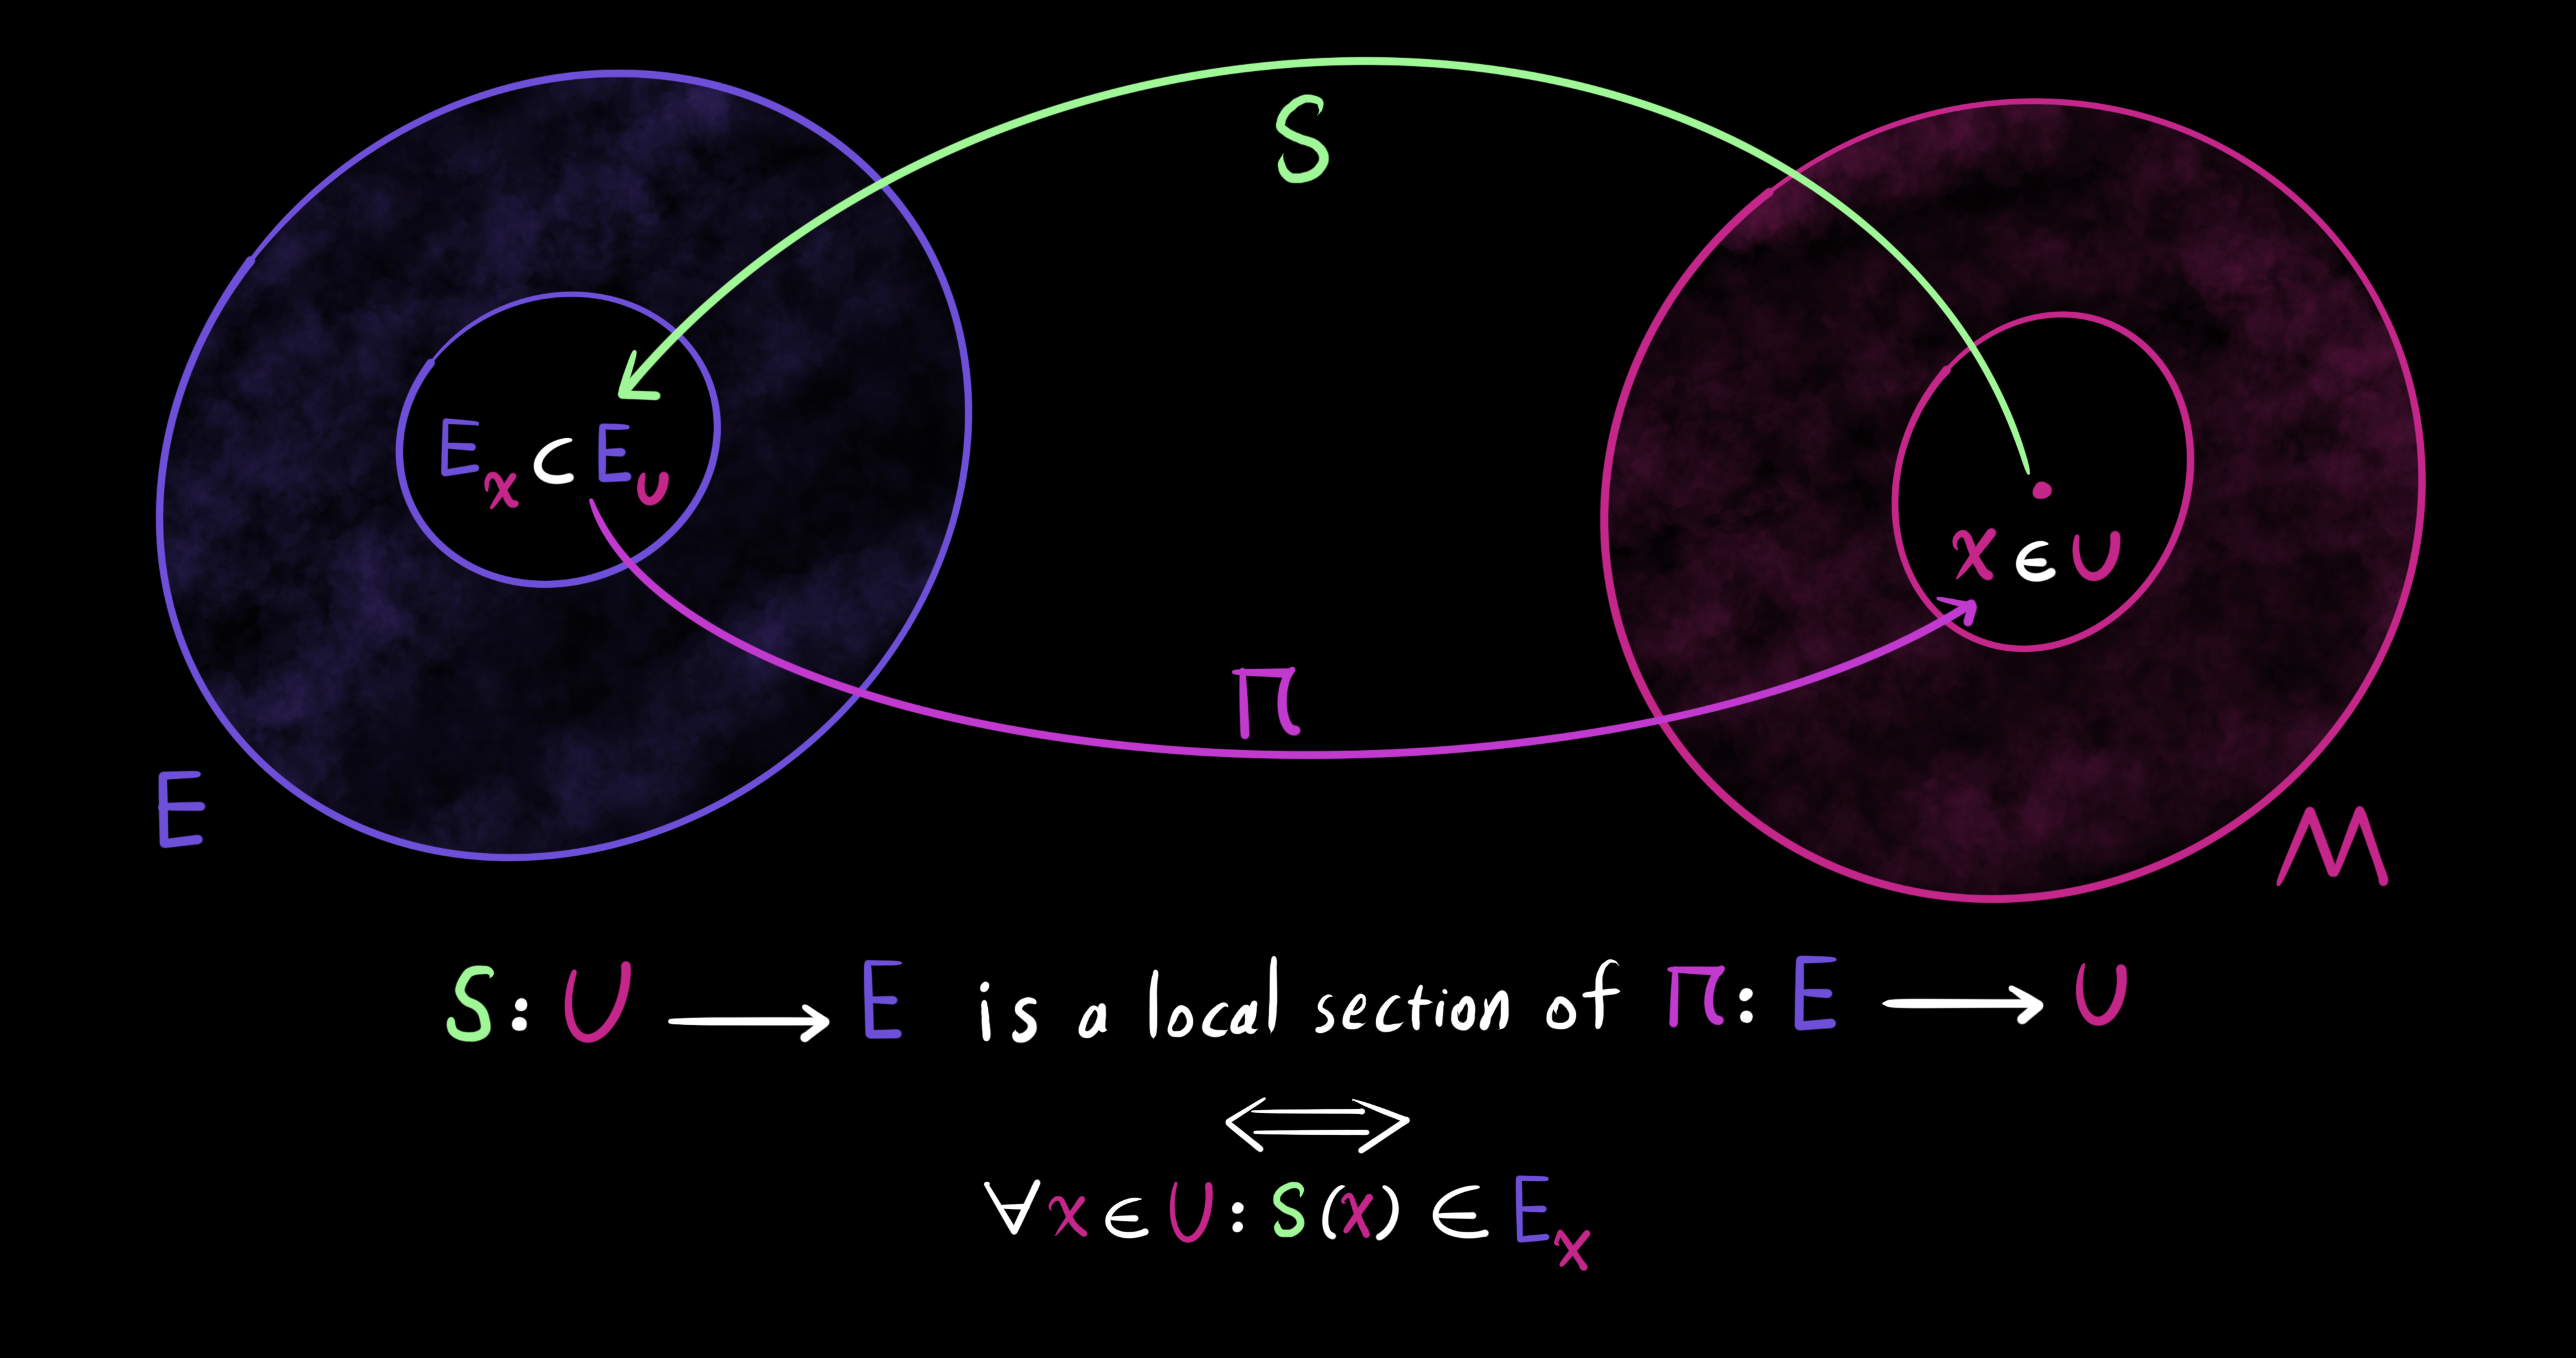 S
E_x ⊂ E_U
x ∈ U
π
E
M
S: U → E is a local section of π: E → U
⟺
∀x ∈ U: S(x) ∈ E_x